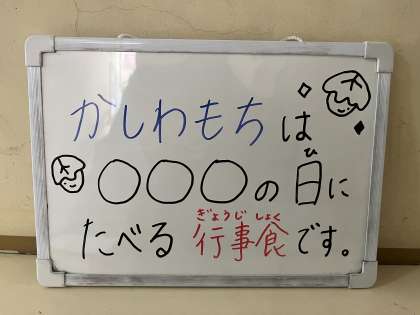 かしわもちは
〇〇〇の日に
ひ
たべる行事食です。
ぎょうじしょく